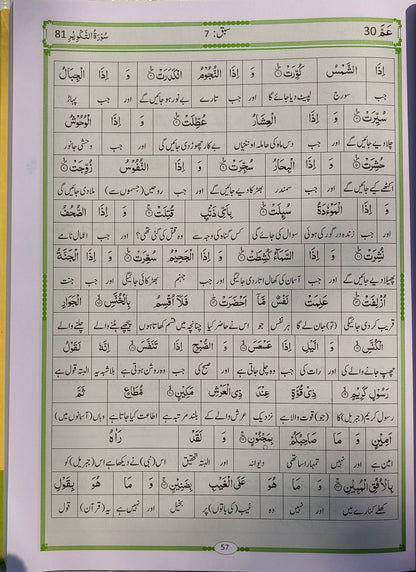 عَمَّ 30 سبق: 7 سُوْرَةُ التَّكْوِيْر 81
اِذَا الشَّمْسُ كُوِّرَتْ ۝۱ وَ اِذَا النُّجُوْمُ انْكَدَرَتْ ۝۲ وَ اِذَا الْجِبَالُ
جب سورج لپیٹ دیا جائے گا اور جب تارے بے نور ہو جائیں گے اور جب پہاڑ
سُيِّرَتْ ۝۳ وَ اِذَا الْعِشَارُ عُطِّلَتْ ۝۴ وَ اِذَا الْوُحُوْشُ
چلا دیے جائیں گے اور جب دس ماہ کی حاملہ اونٹنیاں بے کار چھوڑ دی جائیں گی اور جب وحشی جانور
حُشِرَتْ ۝۵ وَ اِذَا الْبِحَارُ سُجِّرَتْ ۝۶ وَ اِذَا النُّفُوْسُ زُوِّجَتْ ۝۷
اکٹھے کیے جائیں گے اور جب سمندر بھڑکا دیے جائیں گے اور جب روحیں (جسموں سے) ملا دی جائیں گی
وَ اِذَا الْمَوْءٗدَةُ سُىِٕلَتْ ۝۸ بِاَىِّ ذَنْۢبٍ قُتِلَتْ ۝۹ وَ اِذَا الصُّحُفُ
اور جب زندہ درگور کی ہوئی سوال کی جائے گی کس گناہ کی وجہ سے وہ قتل کی گئی تھی؟ اور جب اعمال نامے
نُشِرَتْ ۝۱۰ وَ اِذَا السَّمَآءُ كُشِطَتْ ۝۱۱ وَ اِذَا الْجَحِيْمُ سُعِّرَتْ ۝۱۲ وَ اِذَا الْجَنَّةُ
پھیلا دیے جائیں گے اور جب آسمان کی کھال اتار دی جائیگی اور جب جہنم بھڑکائی جائیگی اور جب جنت
اُزْلِفَتْ ۝۱۳ عَلِمَتْ نَفْسٌ مَّاۤ اَحْضَرَتْ ۝۱۴ فَلَاۤ اُقْسِمُ بِالْخُنَّسِ ۝۱۵ الْجَوَارِ
قریب کر دی جائیگی (تو) جان لے گا ہر نفس جو اس نے حاضر کیا چنانچہ میں قسم کھاتا ہوں پیچھے ہٹنے والے چلنے والے
الْكُنَّسِ ۝۱۶ وَ الَّيْلِ اِذَا عَسْعَسَ ۝۱۷ وَ الصُّبْحِ اِذَا تَنَفَّسَ ۝۱۸ اِنَّهٗ لَقَوْلُ
چھپ جانے والے کی اور رات کی جب وہ چلی جاتی ہے اور صبح کی جب وہ روشن ہوتی ہے بلاشبہ یہ البتہ قول ہے
رَسُوْلٍ كَرِيْمٍ ۝۱۹ ذِىْ قُوَّةٍ عِنْدَ ذِى الْعَرْشِ مَكِيْنٍ ۝۲۰ مُّطَاعٍ ثَمَّ
رسول کریم (جبریل) کا (جو) قوت والا ہے نزدیک عرش والے کے بلند مرتبہ ہے اطاعت کیا جاتا ہے وہاں (آسمانوں میں)
اَمِيْنٍ ۝۲۱ وَ مَا صَاحِبُكُمْ بِمَجْنُوْنٍ ۝۲۲ وَ لَقَدْ رَاٰهُ
امین ہے اور نہیں تمہارا ساتھی دیوانہ اور البتہ تحقیق اس (نبی) نے دیکھا ہے اس (جبریل) کو
بِالْاُفُقِ الْمُبِيْنِ ۝۲۳ وَ مَا هُوَ عَلَى الْغَيْبِ بِضَنِيْنٍ ۝۲۴ وَ مَا هُوَ بِقَوْلِ
کھلے کنارے میں اور نہیں وہ غیب (کی باتوں) پر بخیل اور نہیں ہے یہ (قرآن) قول
57